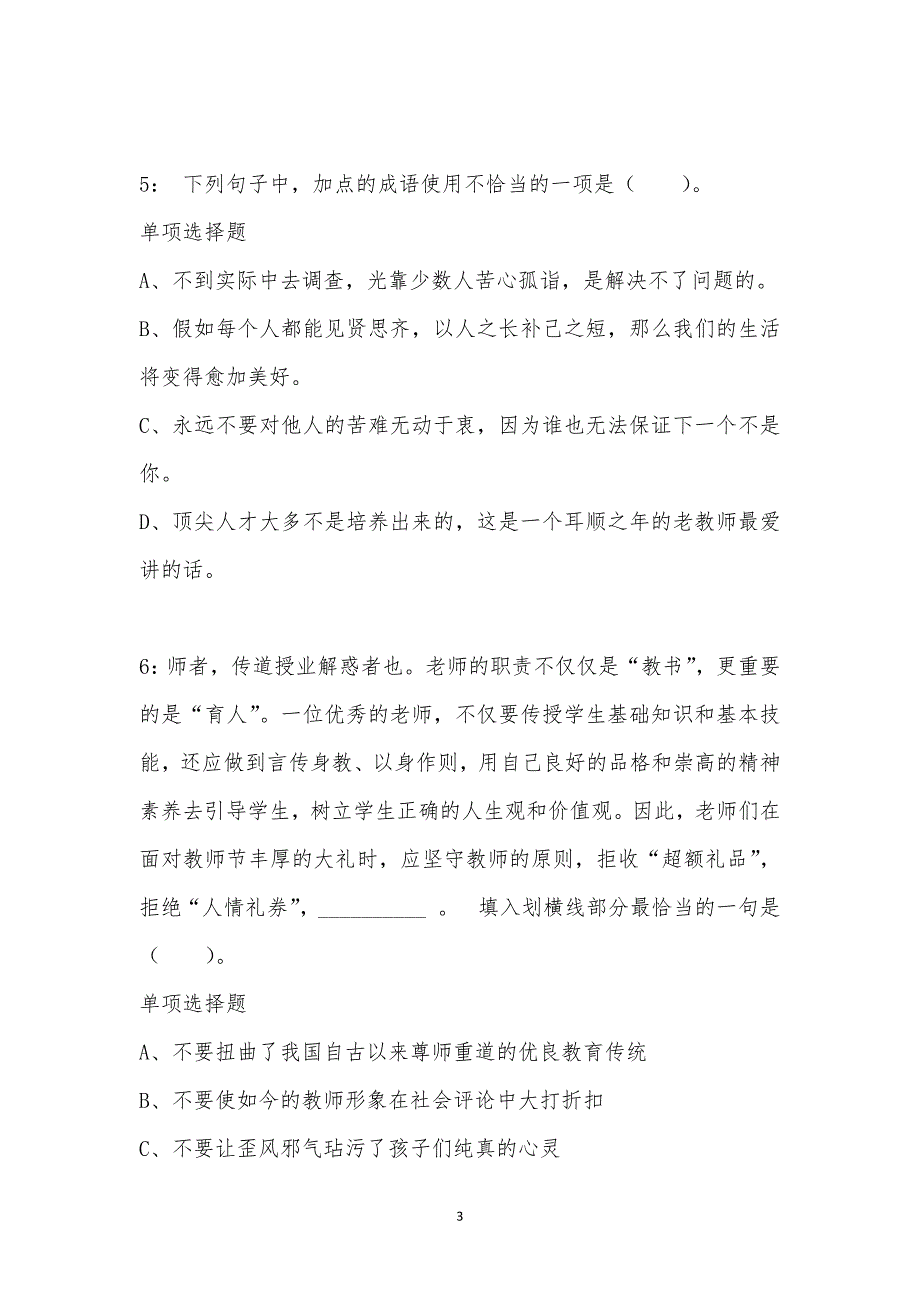 5： 下列句子中，加点的成语使用不恰当的一项是（　　）。
单项选择题
A、不到实际中去调查，光靠少数人苦心孤诣，是解决不了问题的。
B、假如每个人都能见贤思齐，以人之长补己之短，那么我们的生活
将变得愈加美好。
C、永远不要对他人的苦难无动于衷，因为谁也无法保证下一个不是
你。
D、顶尖人才大多不是培养出来的，这是一个耳顺之年的老教师最爱
讲的话。
6：师者，传道授业解惑者也。老师的职责不仅仅是“教书”，更重要
的是“育人”。一位优秀的老师，不仅要传授学生基础知识和基本技
能，还应做到言传身教、以身作则，用自己良好的品格和崇高的精神
素养去引导学生，树立学生正确的人生观和价值观。因此，老师们在
面对教师节丰厚的大礼时，应坚守教师的原则，拒收“超额礼品”，
拒绝“人情礼券”，__________ 。　填入划横线部分最恰当的一句是
（　　）。
单项选择题
A、不要扭曲了我国自古以来尊师重道的优良教育传统
B、不要使如今的教师形象在社会评论中大打折扣
C、不要让歪风邪气玷污了孩子们纯真的心灵
3